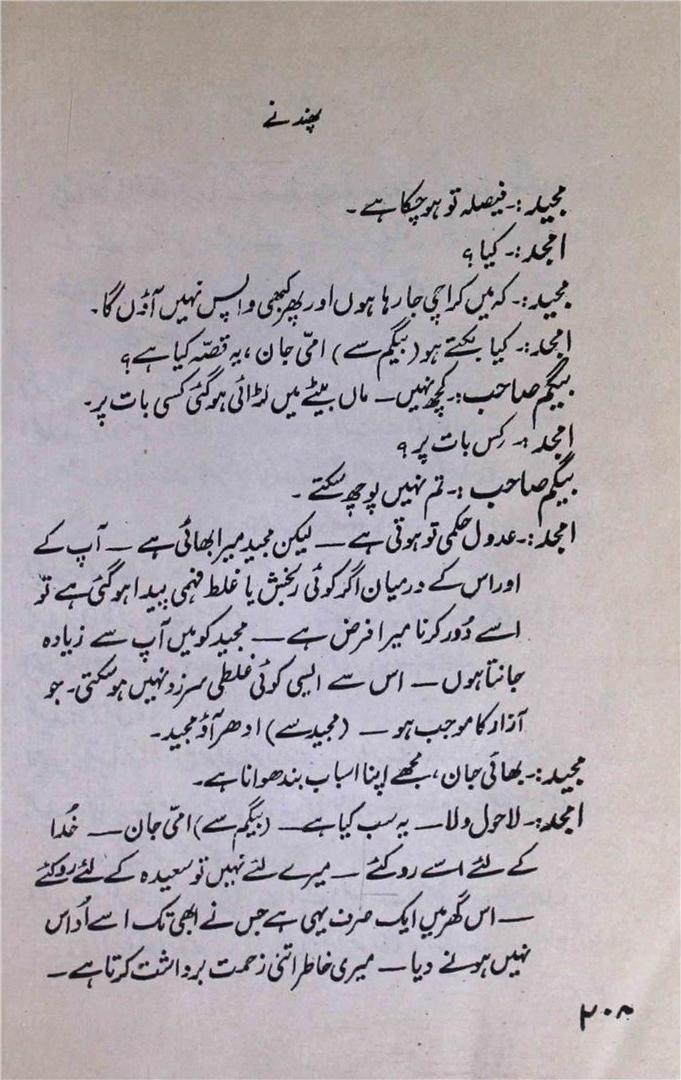 پھندنے
مجید:۔ فیصلہ تو ہوچکا ہے ۔
امجد:۔ کیا؟
مجید:۔ کہ میں کراچی جا رہا ہوں اور پھر کبھی واپس نہیں آؤں گا۔
امجد:۔ کیا بکتے ہو (بیگم سے) امّی جان ، یہ قصّہ کیا ہے؟
بیگم صاحب:۔ کچھ نہیں ــ ماں بیٹے میں لڑائی ہوگئی کسی بات پر۔
امجد:۔ کِس بات پر؟
بیگم صاحب :۔ تم نہیں پوچھ سکتے ۔
امجد:۔ عدول حکمی تو ہوتی ہے ــ لیکن مجید میرا بھائی ہے ــ آپ کے
اور اس کے درمیان اگر کوئی رنجش یا غلط فہمی پیدا ہوگئی ہے تو
اسے دُور کرنا میرا فرض ہے ــ مجید کو میں آپ سے زیادہ
جانتا ہوں ــ اس سے ایسی کوئی غلطی سرزد نہیں ہوسکتی۔ جو
آزار کا موجب ہو ــ (مجید سے) ادھر آؤ مجید۔
مجید:۔ بھائی جان ، مجھے اپنا اسباب بندھوانا ہے۔
امجد:۔ لاحول ولا ــ یہ سب کیا ہے ــ (بیگم سے) امّی جان ــ خُدا
کے لئے اسے روکئے ــ میرے لئے نہیں تو سعیدہ کے لئے روکئے
ــ اس گھر میں ایک صرف یہی ہے جس نے ابھی تک اسے اُداس
نہیں ہونے دیا ــ میری خاطر اتنی زحمت برداشت کرتا ہے ــ
۲۰۸